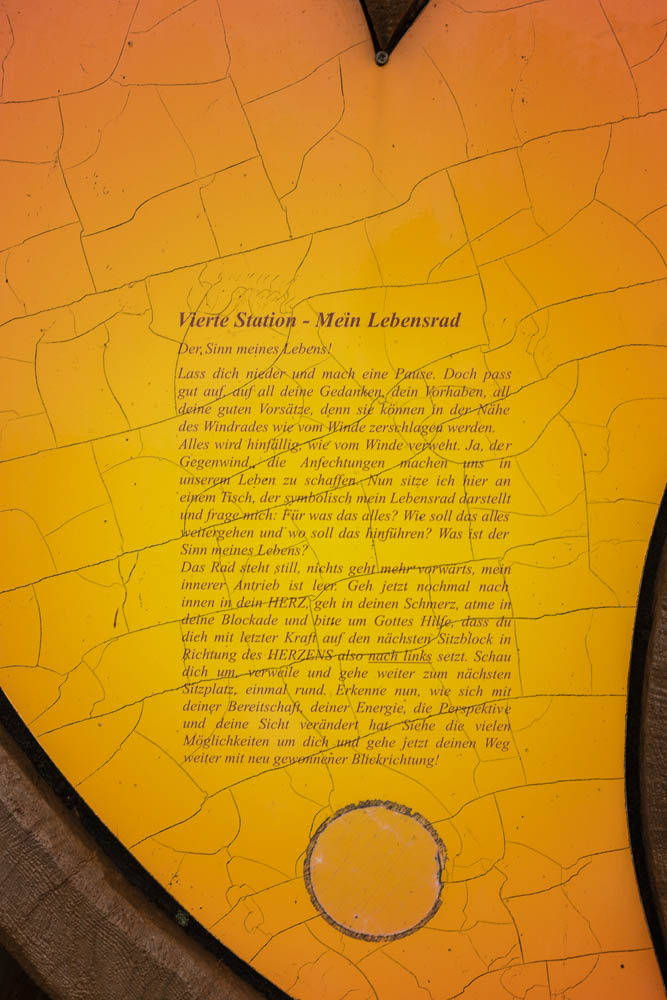 Vierte Station - Mein Lebensrad
Der Sinn meines Lebens!
Lass dich nieder und mach eine Pause. Doch pass
gut auf, auf all deine Gedanken, dein Vorhaben, all
deine guten Vorsätze, denn sie können in der Nähe
des Windrades wie vom Winde zerschlagen werden.
Alles wird hinfällig, wie vom Winde verweht. Ja, der
Gegenwind, die Anfechtungen machen uns in
unserem Leben zu schaffen. Nun sitze ich hier an
einem Tisch, der symbolisch mein Lebensrad darstellt
und frage mich: Für was das alles? Wie soll das alles
weitergehen und wo soll das hinführen? Was ist der
Sinn meines Lebens?
Das Rad steht still, nichts geht mehr vorwärts, mein
innerer Antrieb ist leer. Geh jetzt nochmal nach
innen in dein HERZ, geh in deinen Schmerz, atme in
deine Blockade und bitte um Gottes Hilfe, dass du
dich mit letzter Kraft auf den nächsten Sitzblock in
Richtung des HERZENS also nach links setzt. Schau
dich um, verweile und gehe weiter zum nächsten
Sitzplatz, einmal rund. Erkenne nun, wie sich mit
deiner Bereitschaft, deiner Energie, die Perspektive
und deine Sicht verändert hat. Siehe die vielen
Möglichkeiten um dich und gehe jetzt deinen Weg
weiter mit neu gewonnener Blickrichtung!